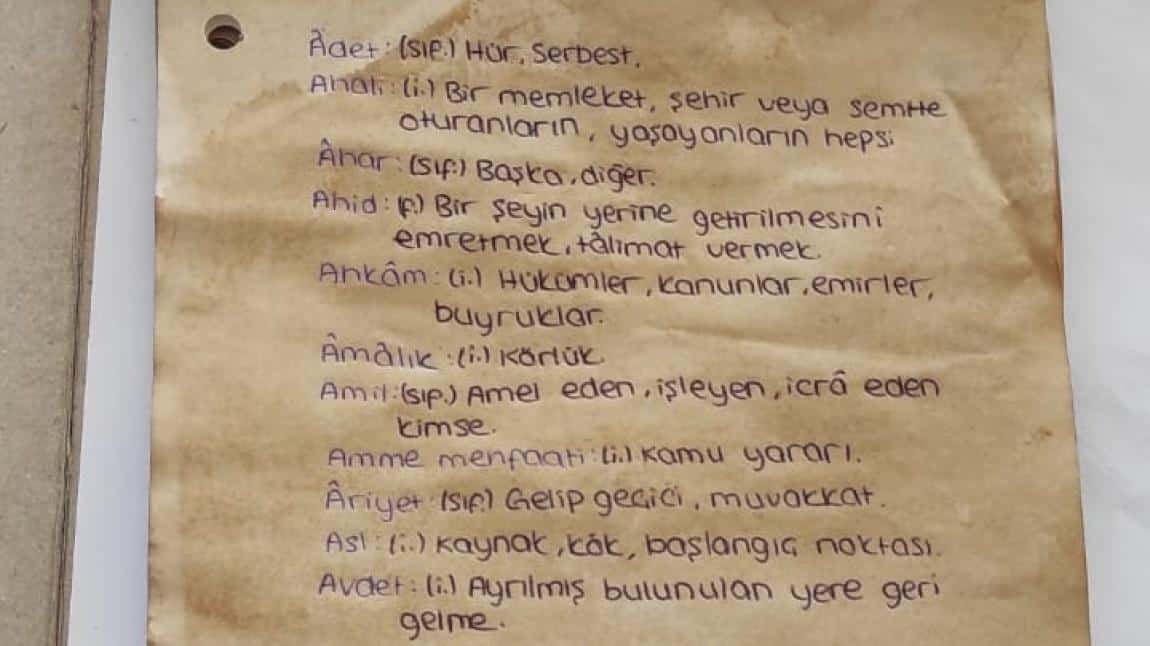 Âdet: (sıf.) Hür, Serbest.
Ahali: (i.) Bir memleket, şehir veya semtte
oturanların, yaşayanların hepsi
Âhar: (sıf.) Başka, diğer.
Ahid: (f.) Bir şeyin yerine getirilmesini
emretmek, tâlimat vermek.
Ahkâm: (i.) Hükümler, kanunlar, emirler,
buyruklar.
Âmâlık: (i.) Körlük.
Amil: (sıf.) Amel eden, işleyen, icrâ eden
kimse.
Amme menfaati: (i.) Kamu yararı.
Âriyet: (sıf.) Gelip geçici, muvakkat.
Asl: (i.) Kaynak, kök, başlangıç noktası.
Avdet: (i.) Ayrılmış bulunulan yere geri
gelme.